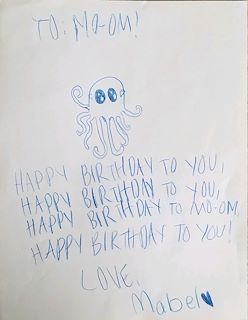 TO: MO-OM!
HAPPY BIRTHDAY TO YOU,
HAPPY BIRTHDAY TO YOU,
HAPPY BIRTHDAY TO MO-OM.
HAPPY BIRTHDAY TO YOU!
LOVE,
Mabel